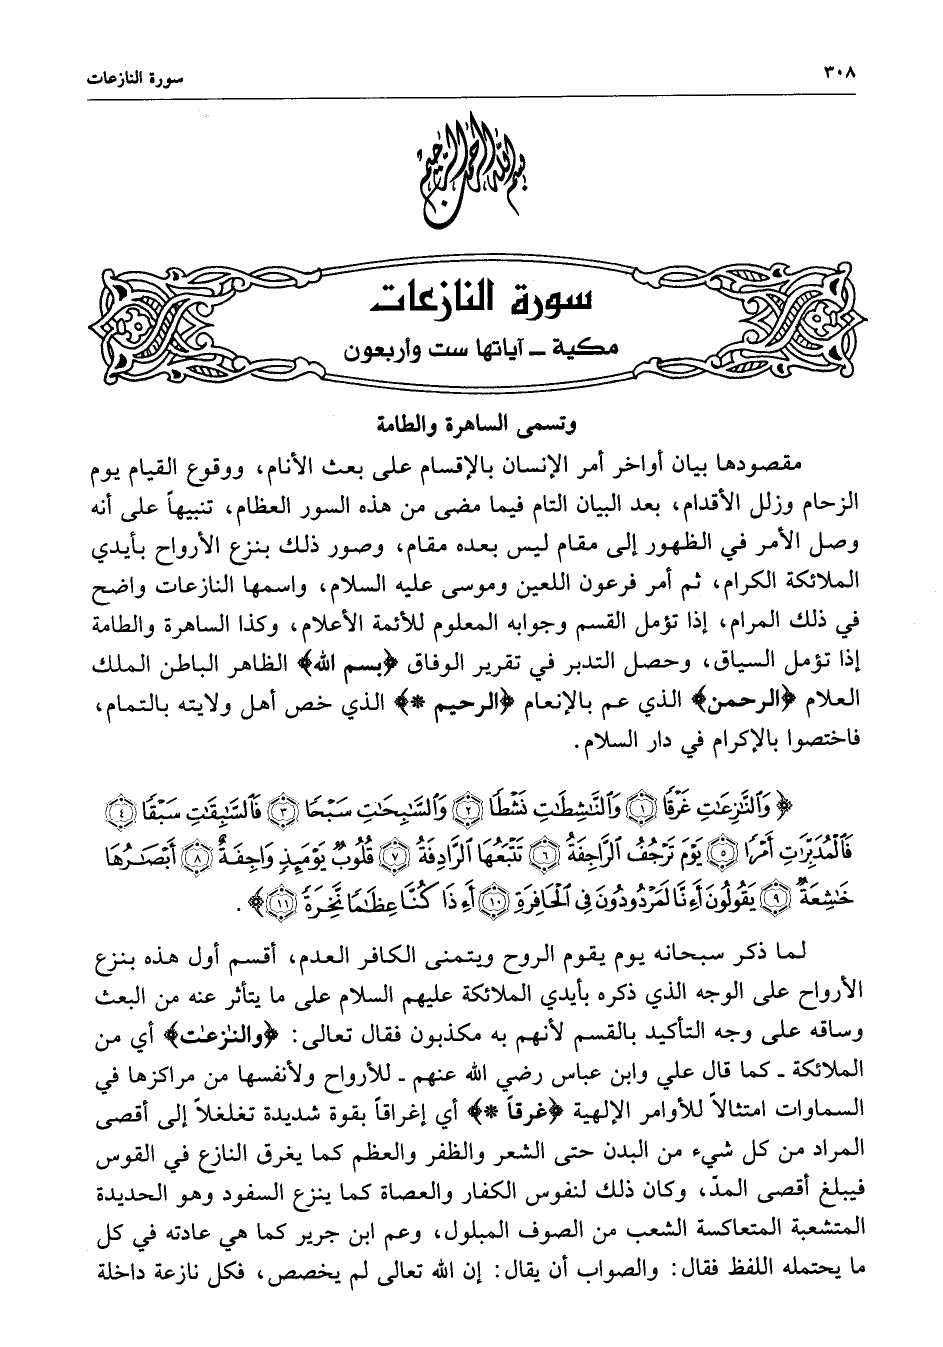 ٣٠٨
سورة النازعات
بسم الله الرحمن الرحيم
سورة النازعات
مكية ـ آياتها ست وأربعون
وتسمى الساهرة والطامة
مقصودها بيان أواخر أمر الإنسان بالإقسام على بعث الأنام، ووقوع القيام يوم
الزحام وزلل الأقدام، بعد البيان التام فيما مضى من هذه السور العظام، تنبيهاً على أنه
وصل الأمر في الظهور إلى مقام ليس بعده مقام، وصور ذلك بنزع الأرواح بأيدي
الملائكة الكرام، ثم أمر فرعون اللعين وموسى عليه السلام، واسمها النازعات واضح
في ذلك المرام، إذا تؤمل القسم وجوابه المعلوم للأئمة الأعلام، وكذا الساهرة والطامة
إذا تؤمل السياق، وحصل التدبر في تقرير الوفاق ﴿بسم الله﴾ الظاهر الباطن الملك
العلام ﴿الرحمن﴾ الذي عم بالإنعام ﴿الرحيم *﴾ الذي خص أهل ولايته بالتمام،
فاختصوا بالإكرام في دار السلام.
﴿ وَٱلنَّٰزِعَٰتِ غَرْقًا ﴿١﴾ وَٱلنَّٰشِطَٰتِ نَشْطًا ﴿٢﴾ وَٱلسَّٰبِحَٰتِ سَبْحًا ﴿٣﴾ فَٱلسَّٰبِقَٰتِ سَبْقًا ﴿٤﴾
فَٱلْمُدَبِّرَٰتِ أَمْرًا ﴿٥﴾ يَوْمَ تَرْجُفُ ٱلرَّاجِفَةُ ﴿٦﴾ تَتْبَعُهَا ٱلرَّادِفَةُ ﴿٧﴾ قُلُوبٌ يَوْمَئِذٍ وَاجِفَةٌ ﴿٨﴾ أَبْصَٰرُهَا
خَٰشِعَةٌ ﴿٩﴾ يَقُولُونَ أَءِنَّا لَمَرْدُودُونَ فِى ٱلْحَافِرَةِ ﴿١٠﴾ أَءِذَا كُنَّا عِظَٰمًا نَّخِرَةً ﴿١١﴾ ﴾.
لما ذكر سبحانه يوم يقوم الروح ويتمنى الكافر العدم، أقسم أول هذه بنزع
الأرواح على الوجه الذي ذكره بأيدي الملائكة عليهم السلام على ما يتأثر عنه من البعث
وساقه على وجه التأكيد بالقسم لأنهم به مكذبون فقال تعالى: ﴿والنٰزعٰت﴾ أي من
الملائكة ـ كما قال علي وابن عباس رضي الله عنهم ـ للأرواح ولأنفسها من مراكزها في
السماوات امتثالاً للأوامر الإلهية ﴿غرقاً *﴾ أي إغراقاً بقوة شديدة تغلغلاً إلى أقصى
المراد من كل شيء من البدن حتى الشعر والظفر والعظم كما يغرق النازع في القوس
فيبلغ أقصى المدّ، وكان ذلك لنفوس الكفار والعصاة كما ينزع السفود وهو الحديدة
المتشعبة المتعاكسة الشعب من الصوف المبلول، وعم ابن جرير كما هي عادته في كل
ما يحتمله اللفظ فقال: والصواب أن يقال: إن الله تعالى لم يخصص، فكل نازعة داخلة